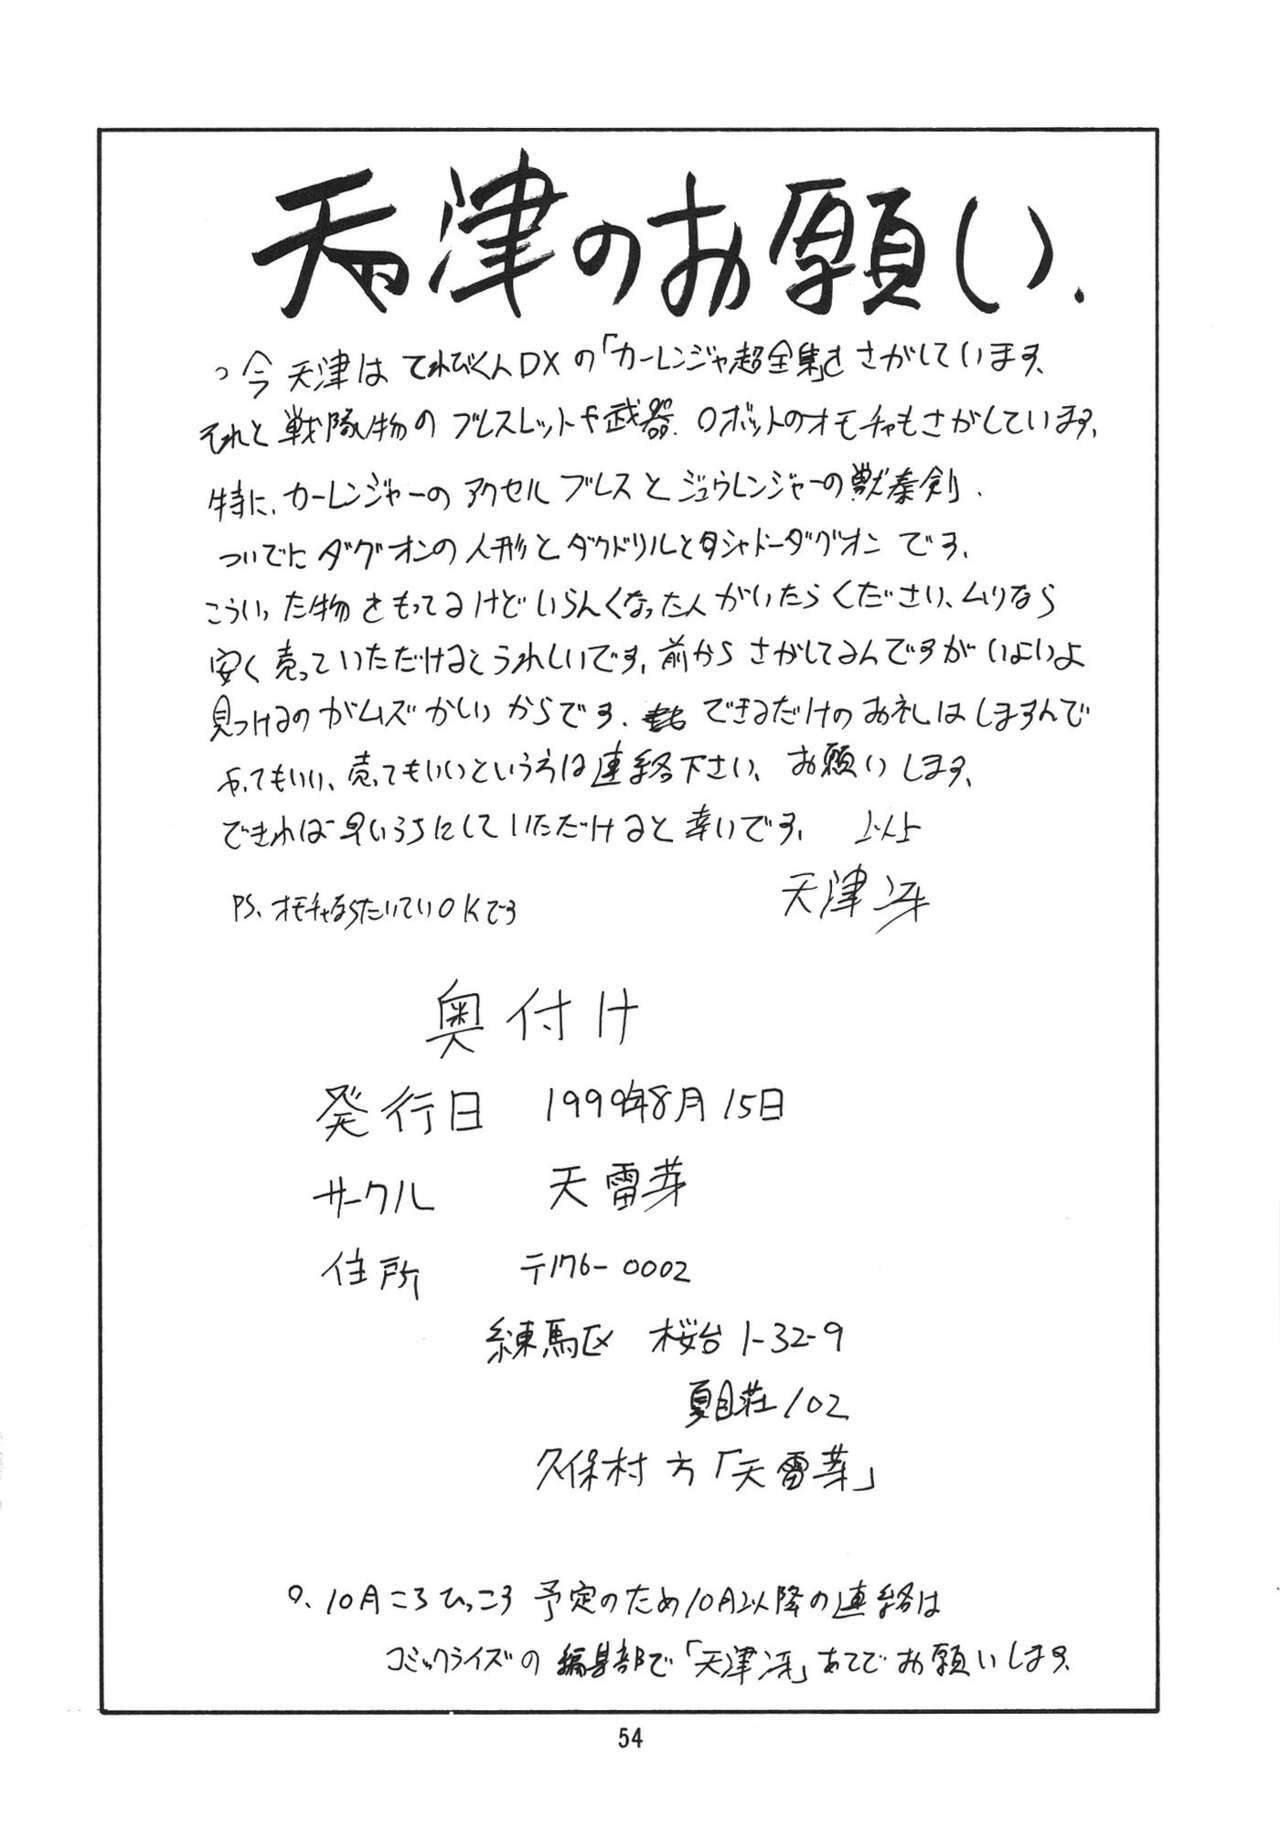 天津のお願い.
今天津はてれびくんDXの「カーレンジャ超全集」をさがしています、
それと戦隊物のブレスレットや武器、ロボットのオモチャもさがしています、
特に、カーレンジャーのアクセルブレスとジュウレンジャーの獣奏剣、
ついでにダグオンの人形とダグドリルとシャドーダグオンです、
こういった物をもってるけどいらんくなった人がいたらください、ムリなら
安く売っていただけるとうれしいです、前からさがしてるんですがいよいよ
見つけるのがムズかしいからです、できるだけのお礼はしますんで
やってもいい、売ってもいいというろは連絡下さい、お願いします、
できれば早いうちにしていただけると幸いです、 以上
天津冴
PS、オモチャならたいていOKです
奥付け
発行日 1999年8月15日
サークル 天雷芽
住所 〒176-0002
練馬区 桜台1-32-9
夏目荘102
久保村方「天雷芽」
9、10月ころひっこう予定のため10月以降の連絡は
コミックライズの編集部で「天津冴」あてでお願いします、
54